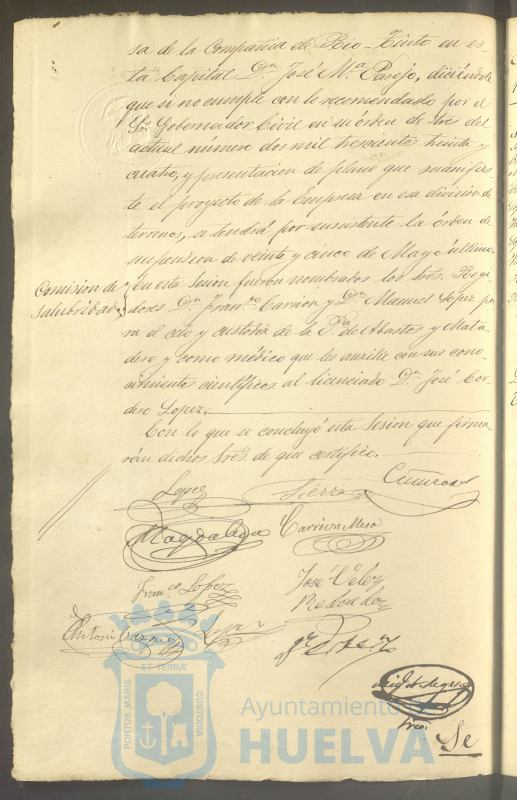 sa de la Compañia de Rio-Tinto en es-
ta Capital Dn. José Mª. Parejo, diciéndole
que si no cumple con lo recomendado por el
Sr. Gobernador Civil en su órden de tres del
actual número dos mil trescientos treinta y
cuatro, y presentacion de plano que manifies-
te el proyecto de la Empresa en esa division de
terrenos, se tendrá por subsistente la órden de
suspension de veinte y cinco de Mayo último.
Comision de
salubridad
En esta Sesion fueron nombrados los Sres. Regi-
dores Dn. Franco. Carrion y Dn. Manuel López pa-
ra el celo y custodia de la Pza. de Abastos y Mata-
dero y como médico que les auxilie con sus cono-
cimientos científicos al licenciado Dn. José Cor-
dero Lopez.
Con lo que se concluyó esta Sesion que firma-
rán dichos Sres. de que certifico.
Lopez Sierra
Magdalena Carrion Mesa
Franco. Lopez José Velez
Redondo
Antonio Vazquez Lopez
Srio.
Se
ET TERRÆ
PORTUS MARIS
CUSTODIA
Ayuntamiento
HUELVA